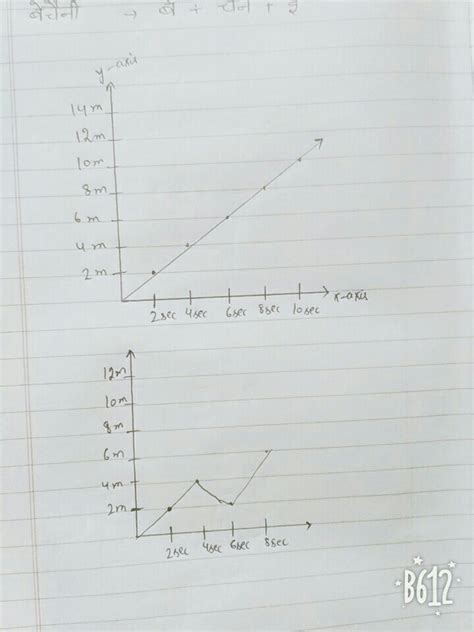 बेचैनी → बे + चैन + ई
y-axis
14m
12m
10m
8m
6m
4m
2m
2sec 4sec 6sec 8sec 10sec x-axis
12m
10m
8m
6m
4m
2m
2sec 4sec 6sec 8sec
B612